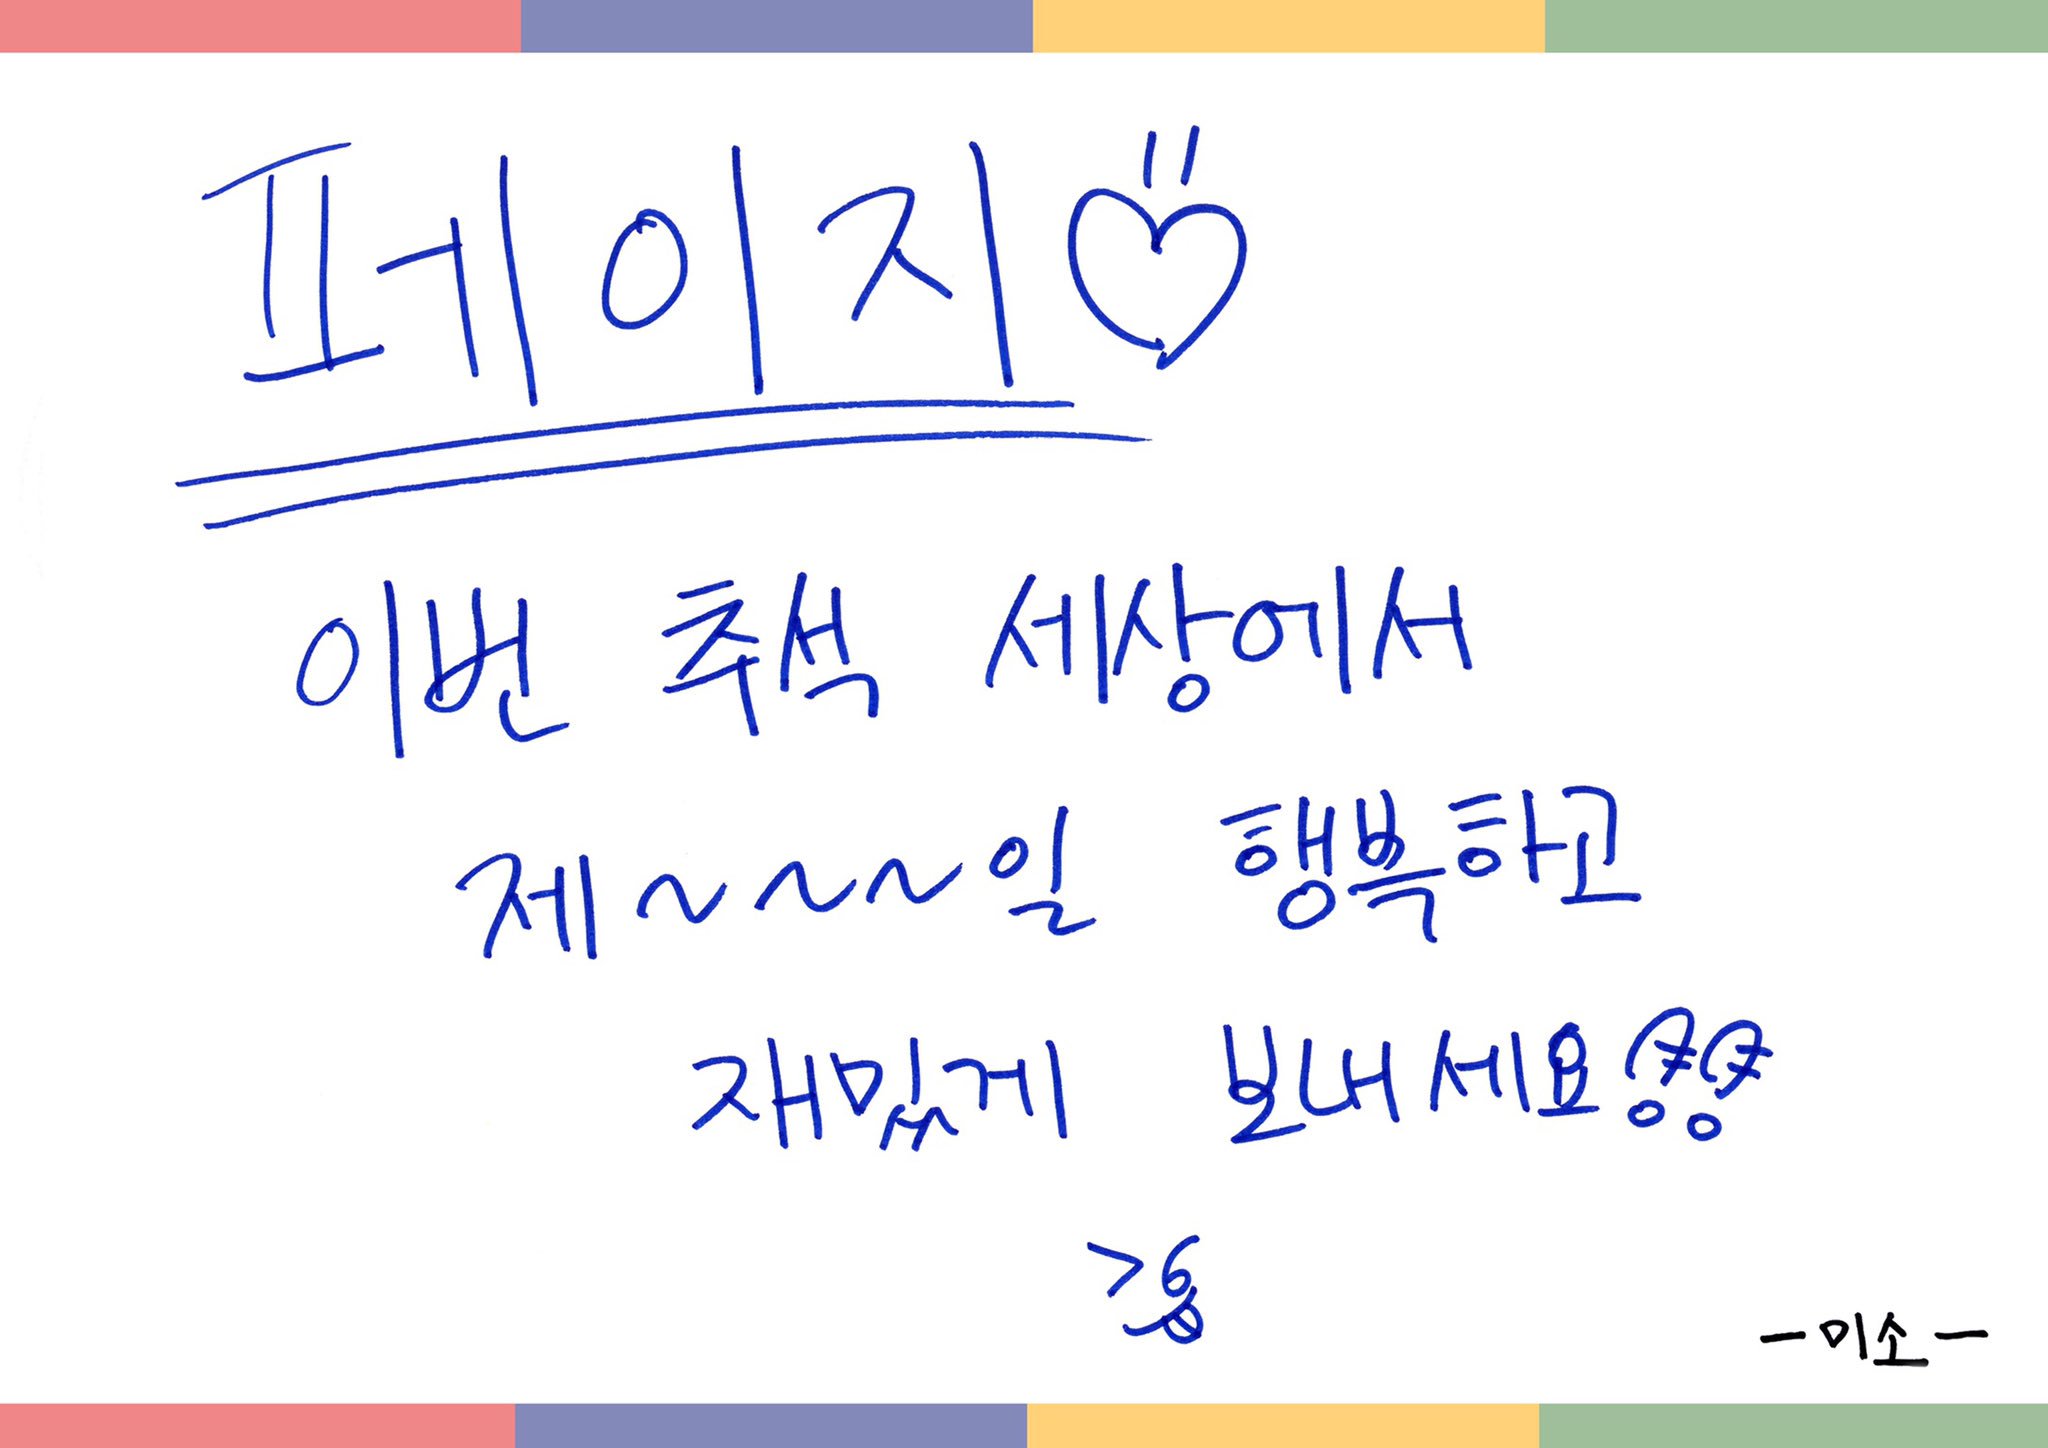 페이지♡
이번 추석 세상에서
제~~~일 행복하고
재밌게 보내세요
-미소-